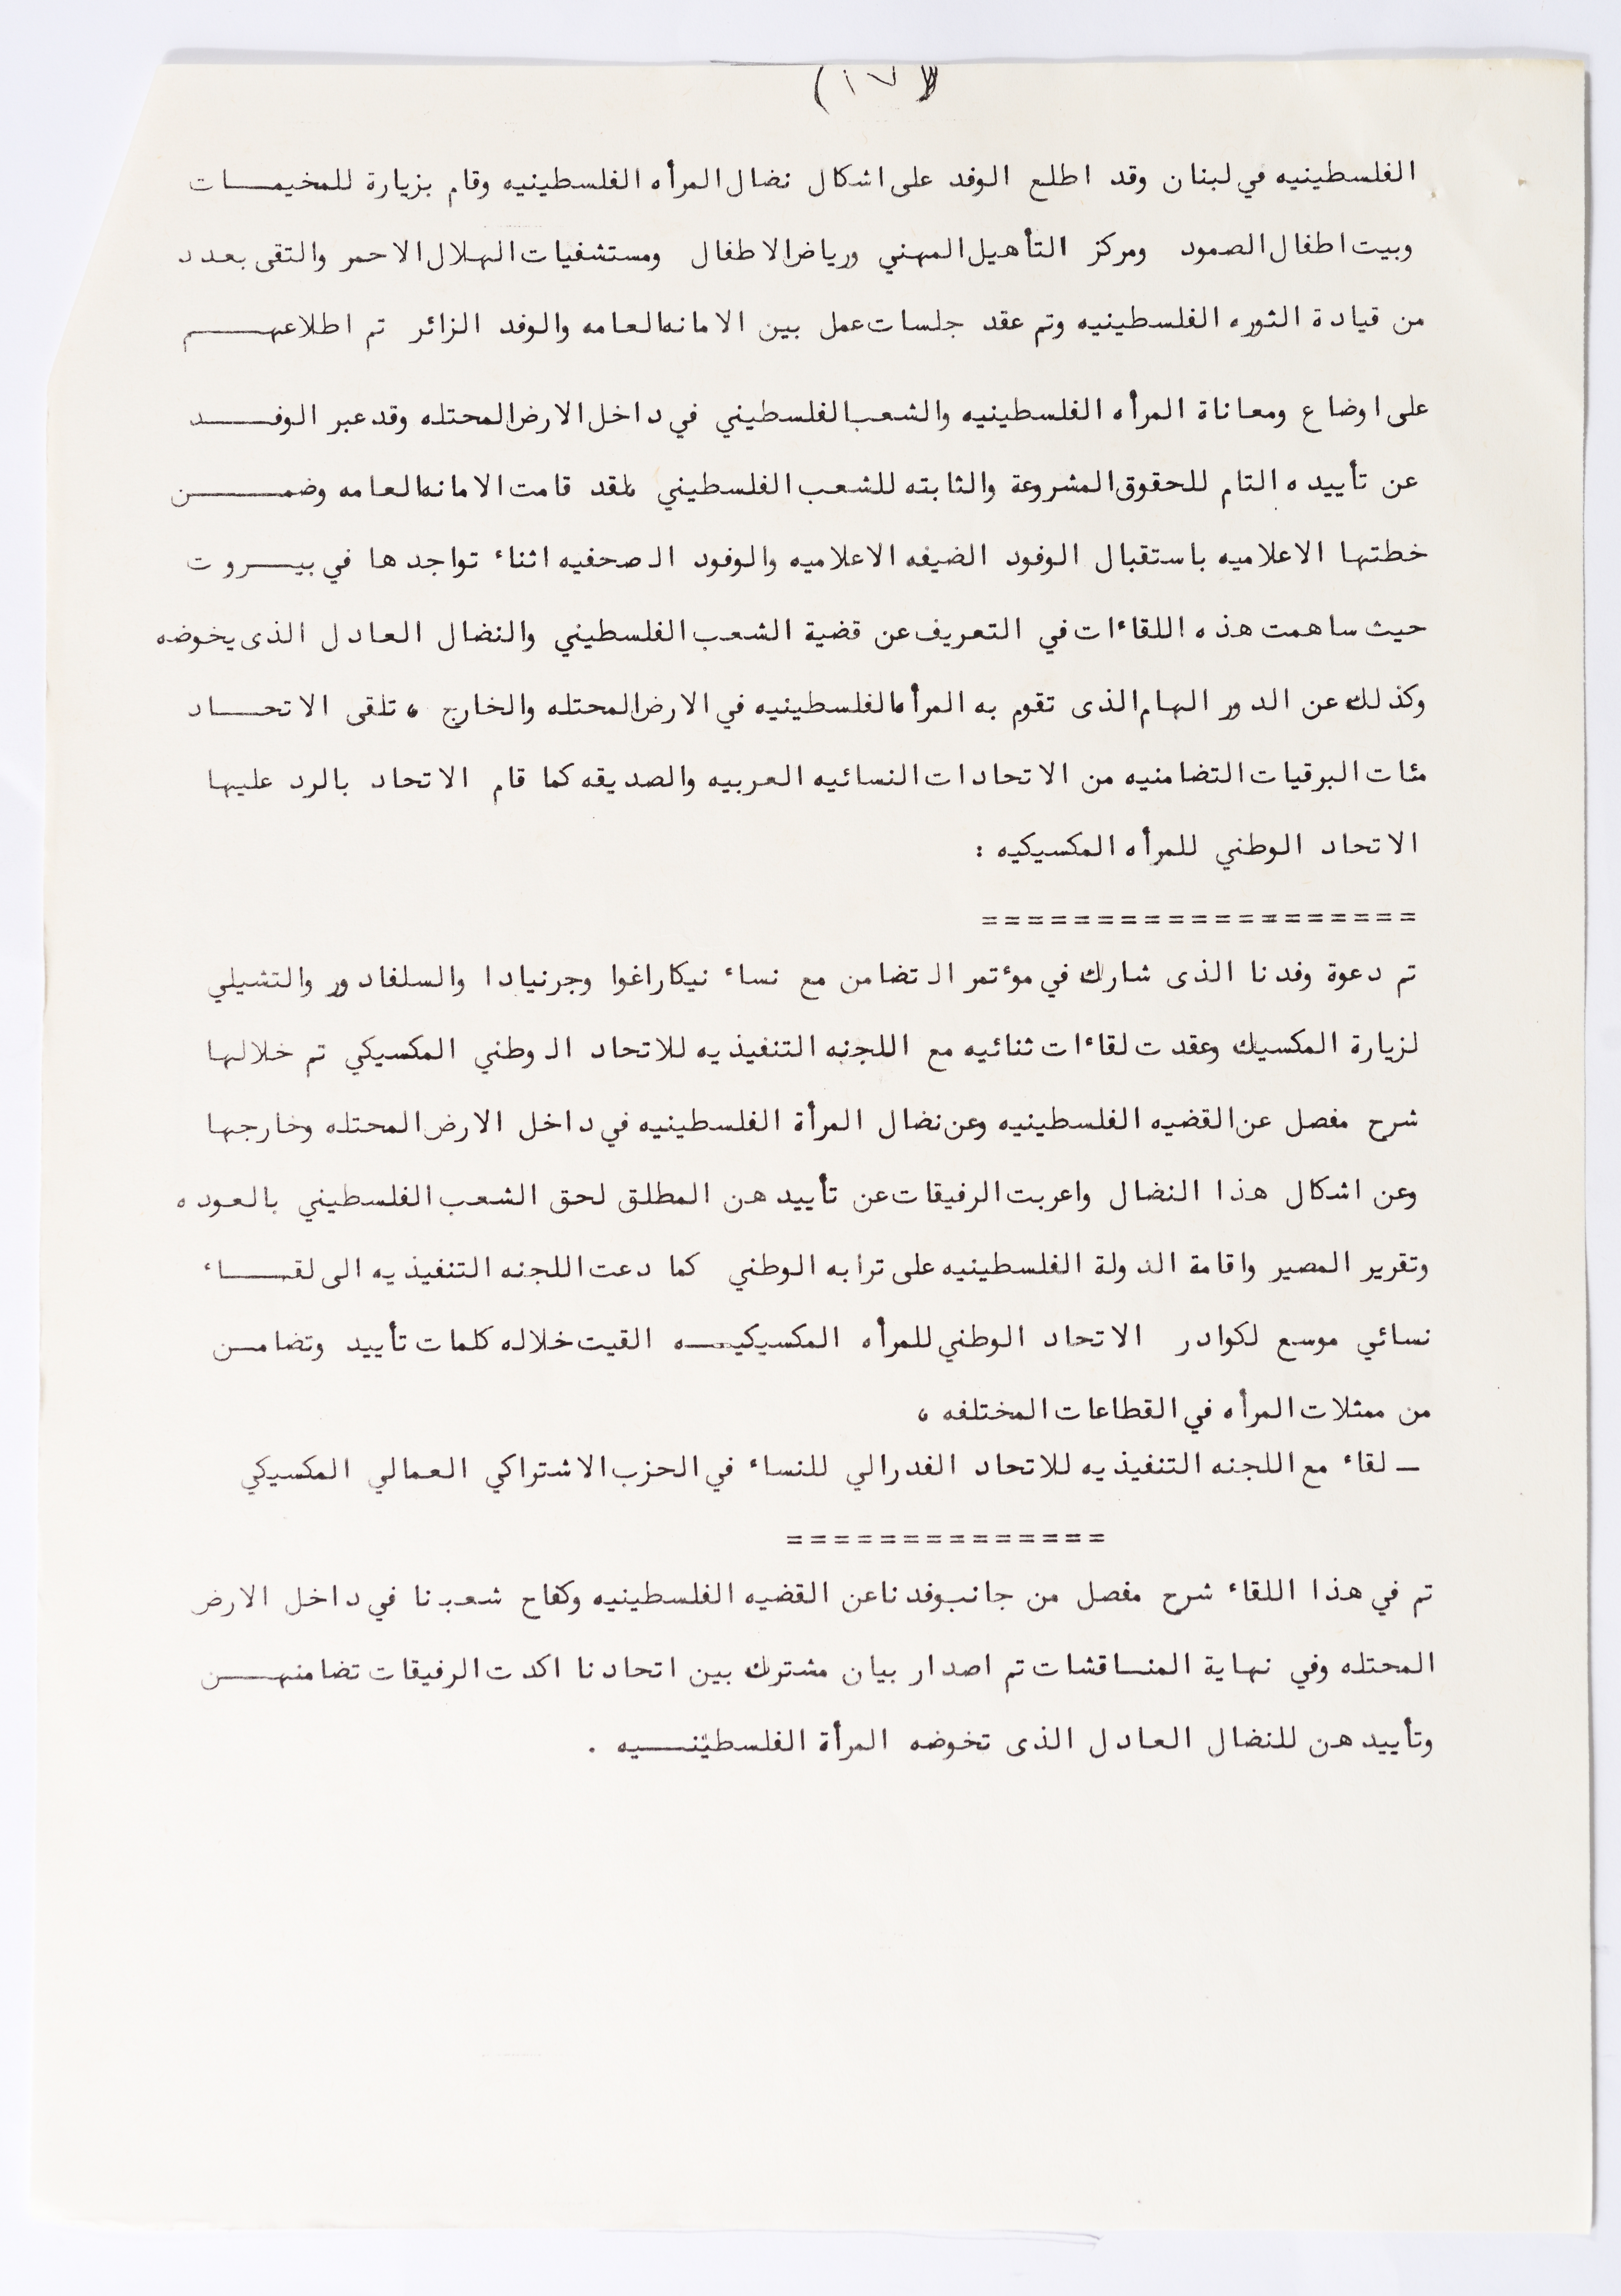 الفلسطينيه في لبنان وقد اطلع الوفد على اشكال نضال المرأه الفلسطينيه وقام بزيارة للمخيمـــات
وبيت اطفال الصمود ومركز التأهيل المهني ورياض الاطفال ومستشفيات الهلال الاحمر والتقى بعدد
من قيادة الثوره الفلسطينيه وتم عقد جلسات عمل بين الامانه العامه والوفد الزائر تم اطلاعهـــم
على اوضاع ومعاناة المرأه الفلسطينيه والشعب الفلسطيني في داخل الارض المحتله وقد عبر الوفـــد
عن تأييده التام للحقوق المشروعة والثابته للشعب الفلسطيني ، لقد قامت الامانه العامه وضمـــن
خطتها الاعلاميه باستقبال الوفود الضيفه الاعلاميه والوفود الصحفيه اثناء تواجدها في بيـــروت
حيث ساهمت هذه اللقاءات في التعريف عن قضية الشعب الفلسطيني والنضال العادل الذى يخوضه
وكذلك عن الدور الهام الذى تقوم به المرأه الفلسطينيه في الارض المحتله والخارج ، تلقى الاتحـــاد
مئات البرقيات التضامنيه من الاتحادات النسائيه العربيه والصديقه كما قام الاتحاد بالرد عليها
الاتحاد الوطني للمرأه المكسيكيه :
===================
تم دعوة وفدنا الذى شارك في موءتمر التضامن مع نساء نيكاراغوا وجرنيادا والسلفادور والتشيلي
لزيارة المكسيك وعقدت لقاءات ثنائيه مع اللجنه التنفيذيه للاتحاد الوطني المكسيكي تم خلالها
شرح مفصل عن القضيه الفلسطينيه وعن نضال المرأة الفلسطينيه في داخل الارض المحتله وخارجها
وعن اشكال هذا النضال واعربت الرفيقات عن تأييدهن المطلق لحق الشعب الفلسطيني بالعوده
وتقرير المصير واقامة الدولة الفلسطينيه على ترابه الوطني كما دعت اللجنه التنفيذيه الى لقـــاء
نسائي موسع لكوادر الاتحاد الوطني للمرأه المكسيكيـــه القيت خلاله كلمات تأييد وتضامـــن
من ممثلات المرأه في القطاعات المختلفه ،
ـ لقاء مع اللجنه التنفيذيه للاتحاد الفدرالي للنساء في الحزب الاشتراكي العمالي المكسيكي
==============
تم في هذا اللقاء شرح مفصل من جانب وفدنا عن القضيه الفلسطينيه وكفاح شعبنا في داخل الارض
المحتله وفي نهاية المناقشات تم اصدار بيان مشترك بين اتحادنا اكدت الرفيقات تضامنهـــن
وتأييدهن للنضال العادل الذى تخوضه المرأة الفلسطينـــيه .